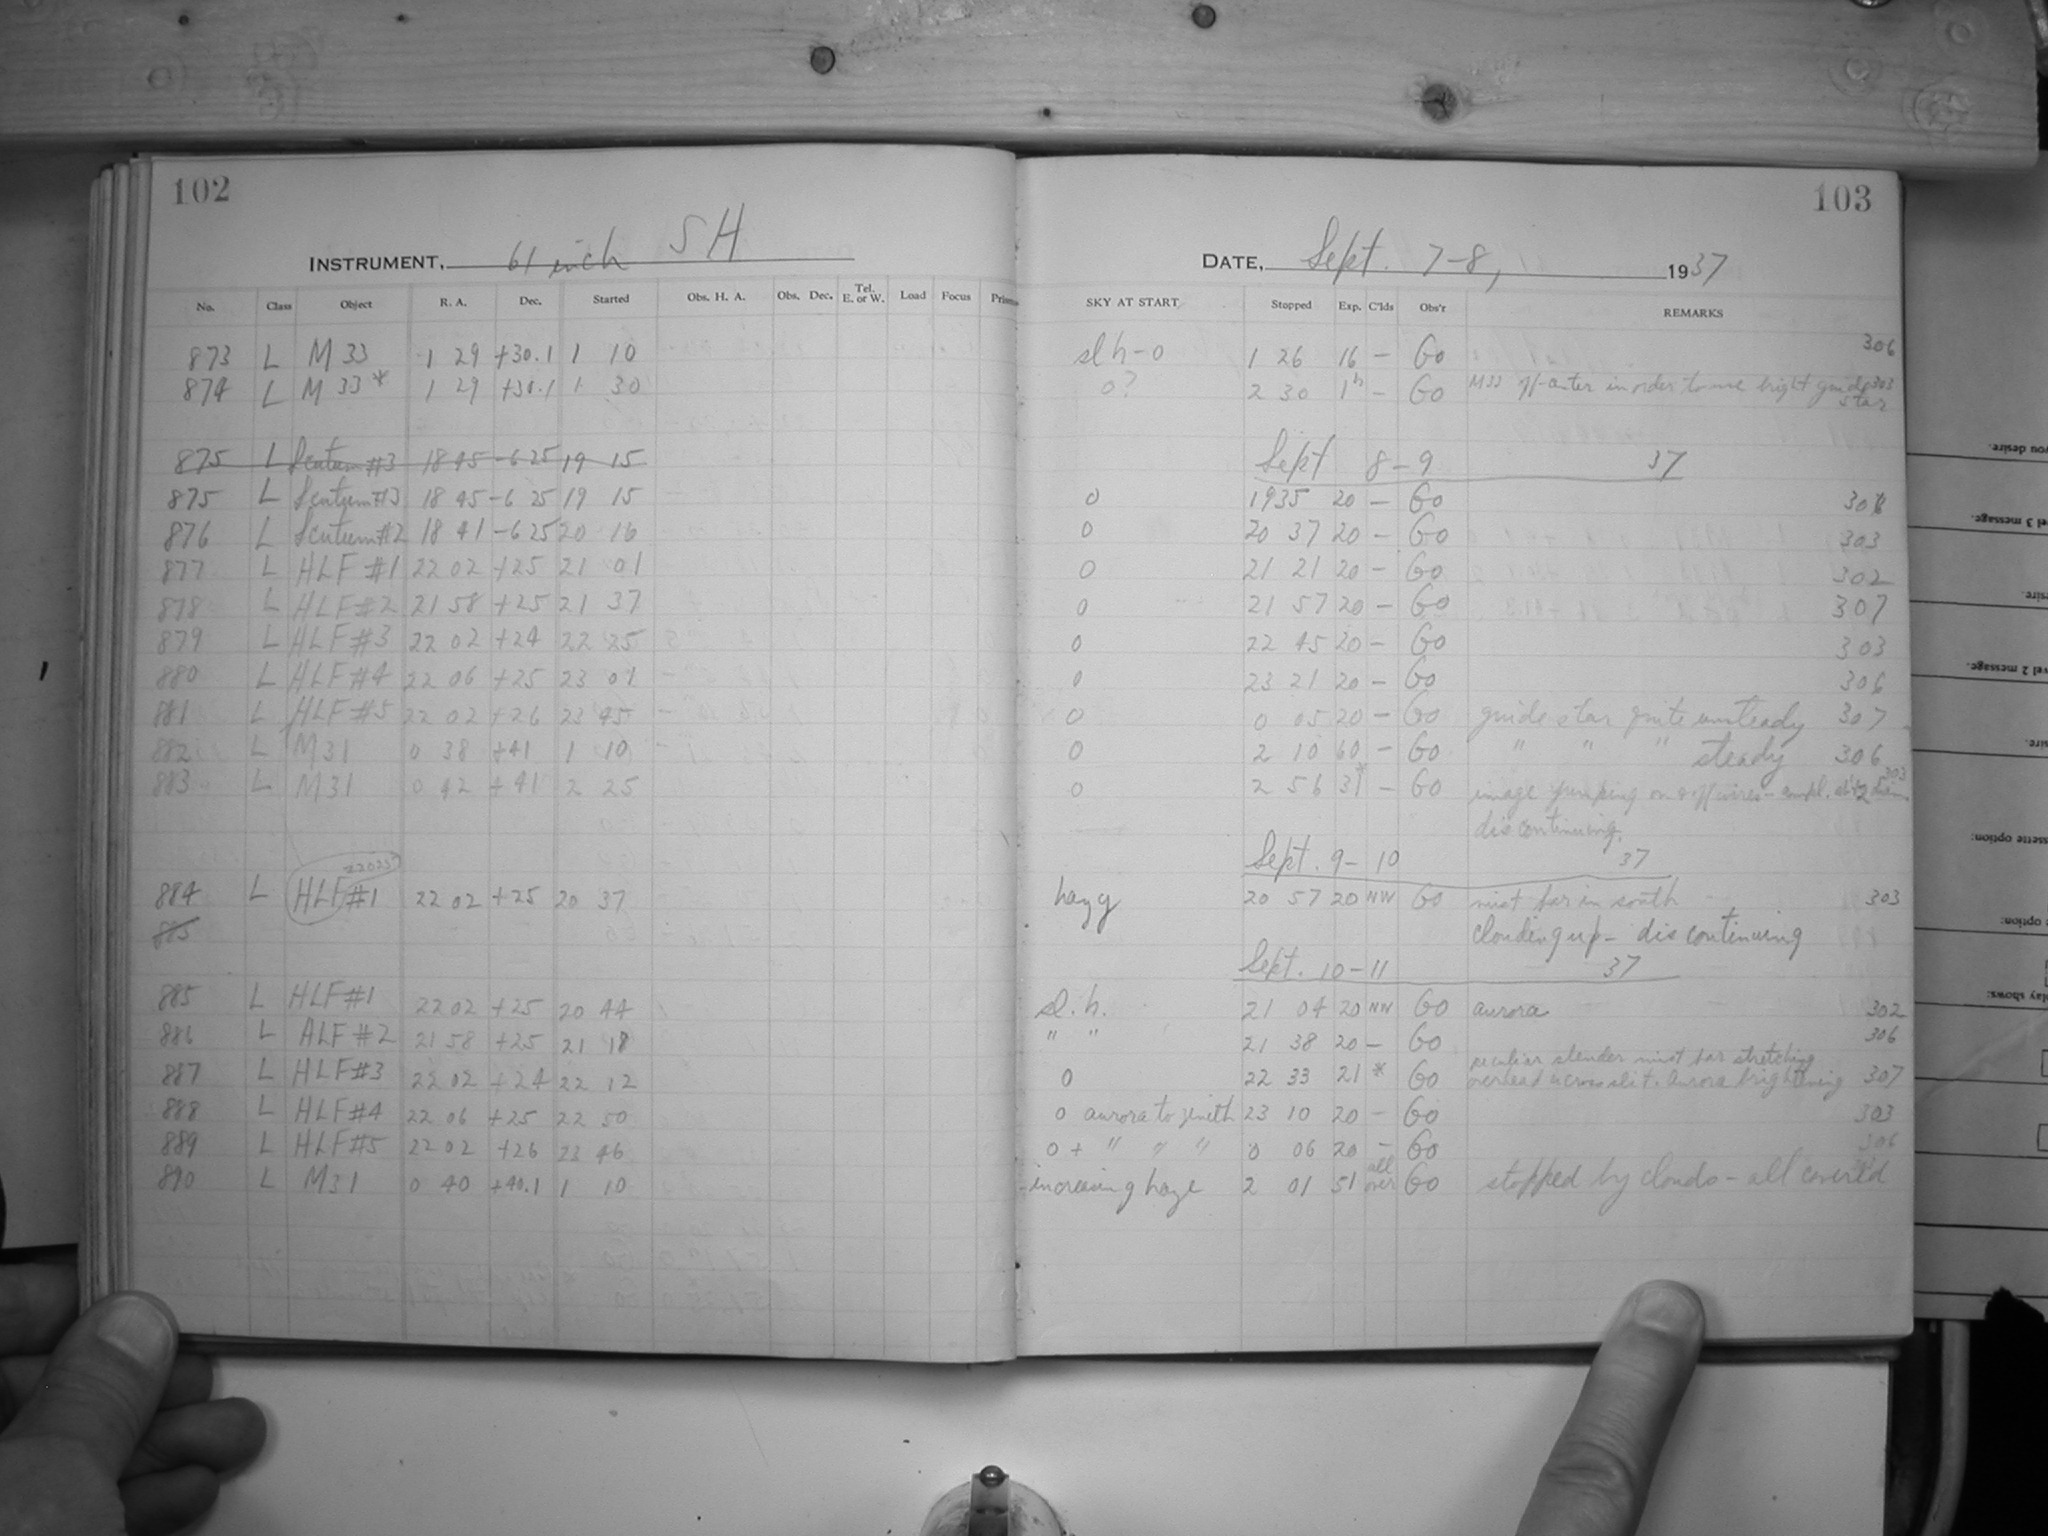 102
INSTRUMENT, 61 inch SH
No. Class Object R. A. Dec. Started Obs. H. A. Obs. Dec. Tel. E. or W. Load Focus
873 L M 33 1 29 +30.1 1 10
874 L M 33* 1 29 +30.1 1 30
875 L Scutum #3 18 45 -6 25 19 15
875 L Scutum #3 18 45 -6 25 19 15
876 L Scutum #2 18 41 -6 25 20 16
877 L HLF #1 22 02 +25 21 01
878 L HLF #2 21 58 +25 21 37
879 L HLF #3 22 02 +24 22 25
880 L HLF #4 22 06 +25 23 01
881 L HLF #5 22 02 +26 23 45
882 L M31 0 38 +41 1 10
883 L M31 0 42 +41 2 25
884 L HLF #1 22 02 +25 20 37
885
885 L HLF #1 22 02 +25 20 44
886 L HLF #2 21 58 +25 21 18
887 L HLF #3 22 02 +24 22 12
888 L HLF #4 22 06 +25 22 50
889 L HLF #5 22 02 +26 23 46
890 L M31 0 40 +40.1 1 10
103
DATE, Sept. 7-8, 1937
SKY AT START Stopped Exp. C'lds Obs'r REMARKS
sl h-0 1 26 16 - Go 306
0? 2 30 1h - Go M33 off-center in order to use bright guide star 303
Sept 8-9 37
0 19 35 20 - Go
0 20 37 20 - Go 303
0 21 21 20 - Go 302
0 21 57 20 - Go 307
0 22 45 20 - Go 303
0 23 21 20 - Go 306
0 0 05 20 - Go guide star quite unsteady 307
0 2 10 60 - Go " " " steady 306
0 2 56 31* - Go image jumping on & off wires - 303
discontinuing.
Sept. 9-10 37
hazy 20 57 20 NW Go mist far in south 303
clouding up - discontinuing
Sept. 10-11 37
sl. h. 21 04 20 NW Go aurora 302
" " 21 38 20 - Go 306
peculiar slender mist bar stretching
0 22 33 21 * Go overhead across slit. Aurora brightening 307
0 aurora to zenith 23 10 20 - Go 303
0 + " " " 0 06 20 - Go 306
increasing haze 2 01 51 all over Go stopped by clouds - all covered